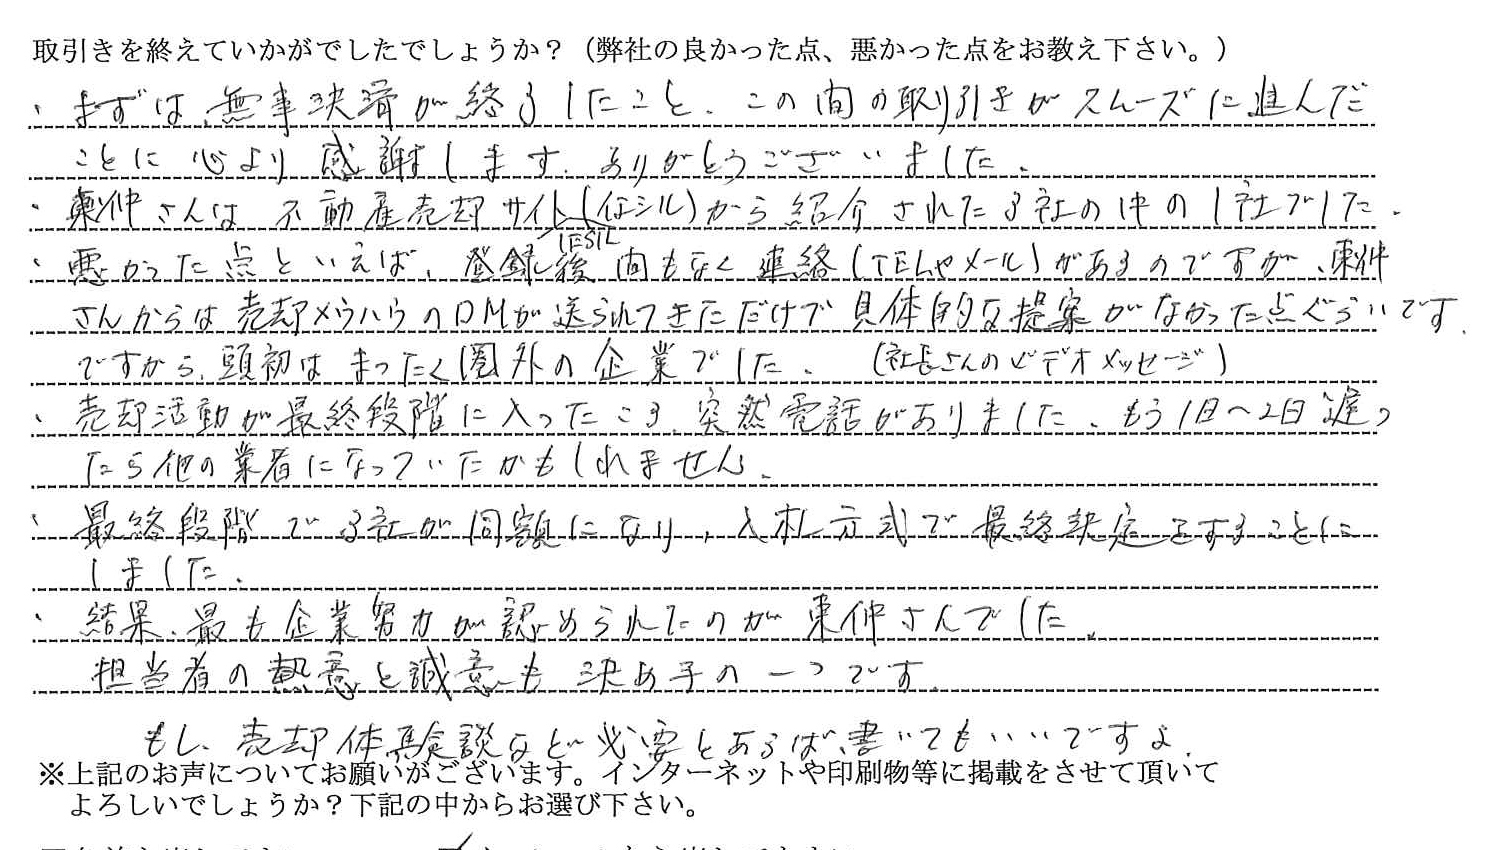 取引きを終えていかがでしたでしょうか？（弊社の良かった点、悪かった点をお教え下さい。）
・まずは、無事決済が終了したこと、この間の取り引きがスムーズに進んだ
ことに心より感謝します。ありがとうございました。
・東仲さんは不動産売却サイト(イエシル)から紹介された3社の中の1社でした。
IESIL
・悪かった点といえば、登録後間もなく連絡(TELやメール)があるのですが、東仲
さんからは売却ノウハウのDMが送られてきただけで具体的な提案がなかった点ぐらいです。
ですから、頭初はまったく圏外の企業でした。(社長さんのビデオメッセージ)
・売却活動が最終段階に入ったころ、突然電話がありました。もう1日〜2日遅っ
たら他の業者になっていたかもしれません。
・最終段階で3社が同額になり、入札方式で最終決定をすることに
しました。
・結果、最も企業努力が認められたのが東仲さんでした。
担当者の熱意と誠意も決め手の一つです。
もし、売却体験談など必要とあらば、書いてもいいですよ。
※上記のお声についてお願いがございます。インターネットや印刷物等に掲載をさせて頂いて
よろしいでしょうか？下記の中からお選び下さい。